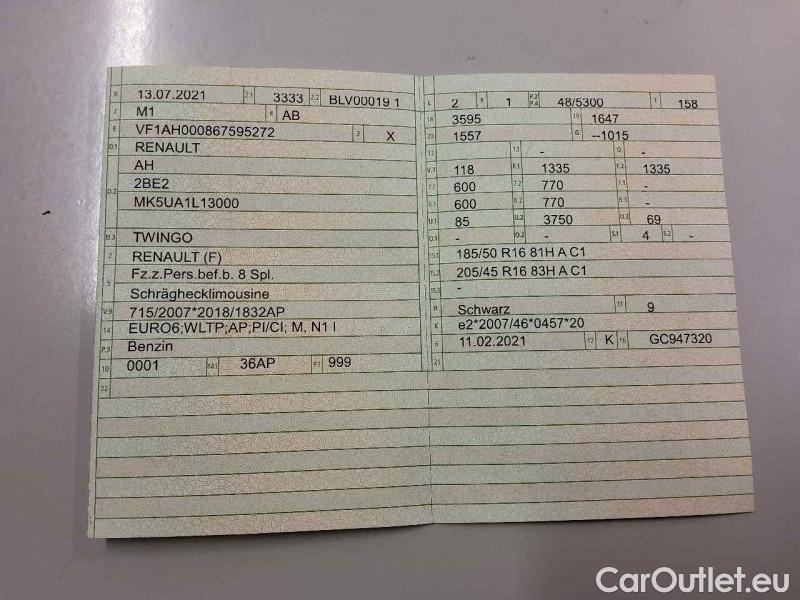 B 13.07.2021 2.1 3333 2.2 BLV00019 1
J M1 4 AB
E VF1AH000867595272 3 X
D.1 RENAULT
AH
D.2 2BE2
MK5UA1L13000
D.3 TWINGO
2 RENAULT (F)
5 Fz.z.Pers.bef.b. 8 Spl.
Schräghecklimousine
V.9 715/2007*2018/1832AP
14 EURO6;WLTP;AP;PI/CI; M, N1 I
P.3 Benzin
10 0001 14.1 36AP P.1 999
22
L 2 9 1 P.2 P.4 48/5300 T 158
18 3595 19 1647
20 1557 G --1015
12 - 13 - Q -
V.7 118 F.1 1335 F.2 1335
7.1 600 7.2 770 7.3 -
8.1 600 8.2 770 8.3 -
U.1 85 U.2 3750 U.3 69
O.1 - O.2 - S.1 4 S.2 -
15.1 185/50 R16 81H A C1
15.2 205/45 R16 83H A C1
15.3 -
R Schwarz 11 9
K e2*2007/46*0457*20
6 11.02.2021 17 K 16 GC947320
21
CarOutlet.eu